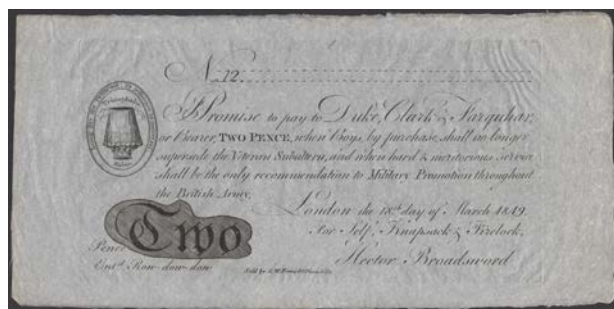 No. 12
I Promise to pay to Duke, Clark & Farquhar,
or Bearer, TWO PENCE, when Boys, by purchase, shall no longer
supersede the Veteran Subaltern, and when hard & meritorious service
shall be the only recommendation to Military Promotion throughout
the British Army.
London the 18th day of March 1819.
For Self, Knapsack & Firelock,
Pence Two
Hector Broadsword
Entd. Row-dow-dow
Sold by